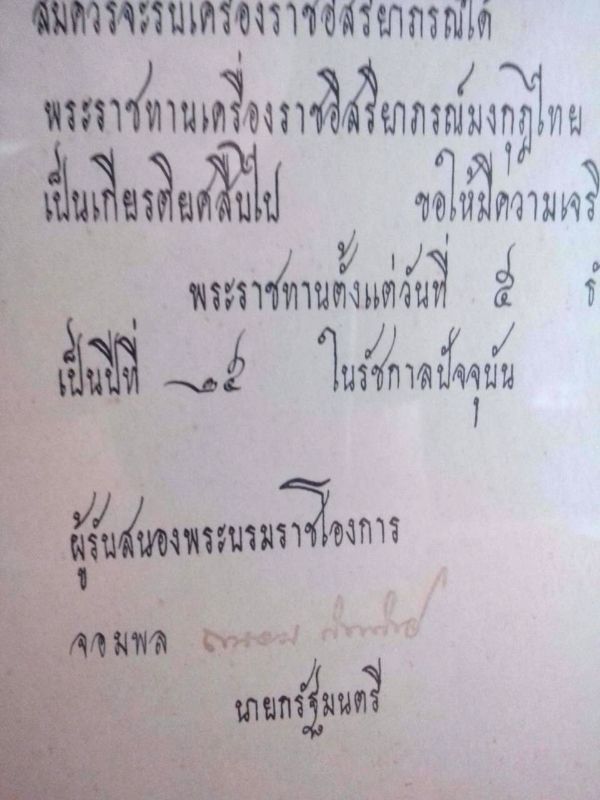 สมควรจะรับเครื่องราชอิสริยาภรณ์ได้
พระราชทานเครื่องราชอิสริยาภรณ์มงกุฎไทย
เป็นเกียรติยศสืบไป ขอให้มีความเจริ
พระราชทานตั้งแต่วันที่ ๕ ธั
เป็นปีที่ ๒๕ ในรัชกาลปัจจุบัน
ผู้รับสนองพระบรมราชโองการ
จอมพล
นายกรัฐมนตรี